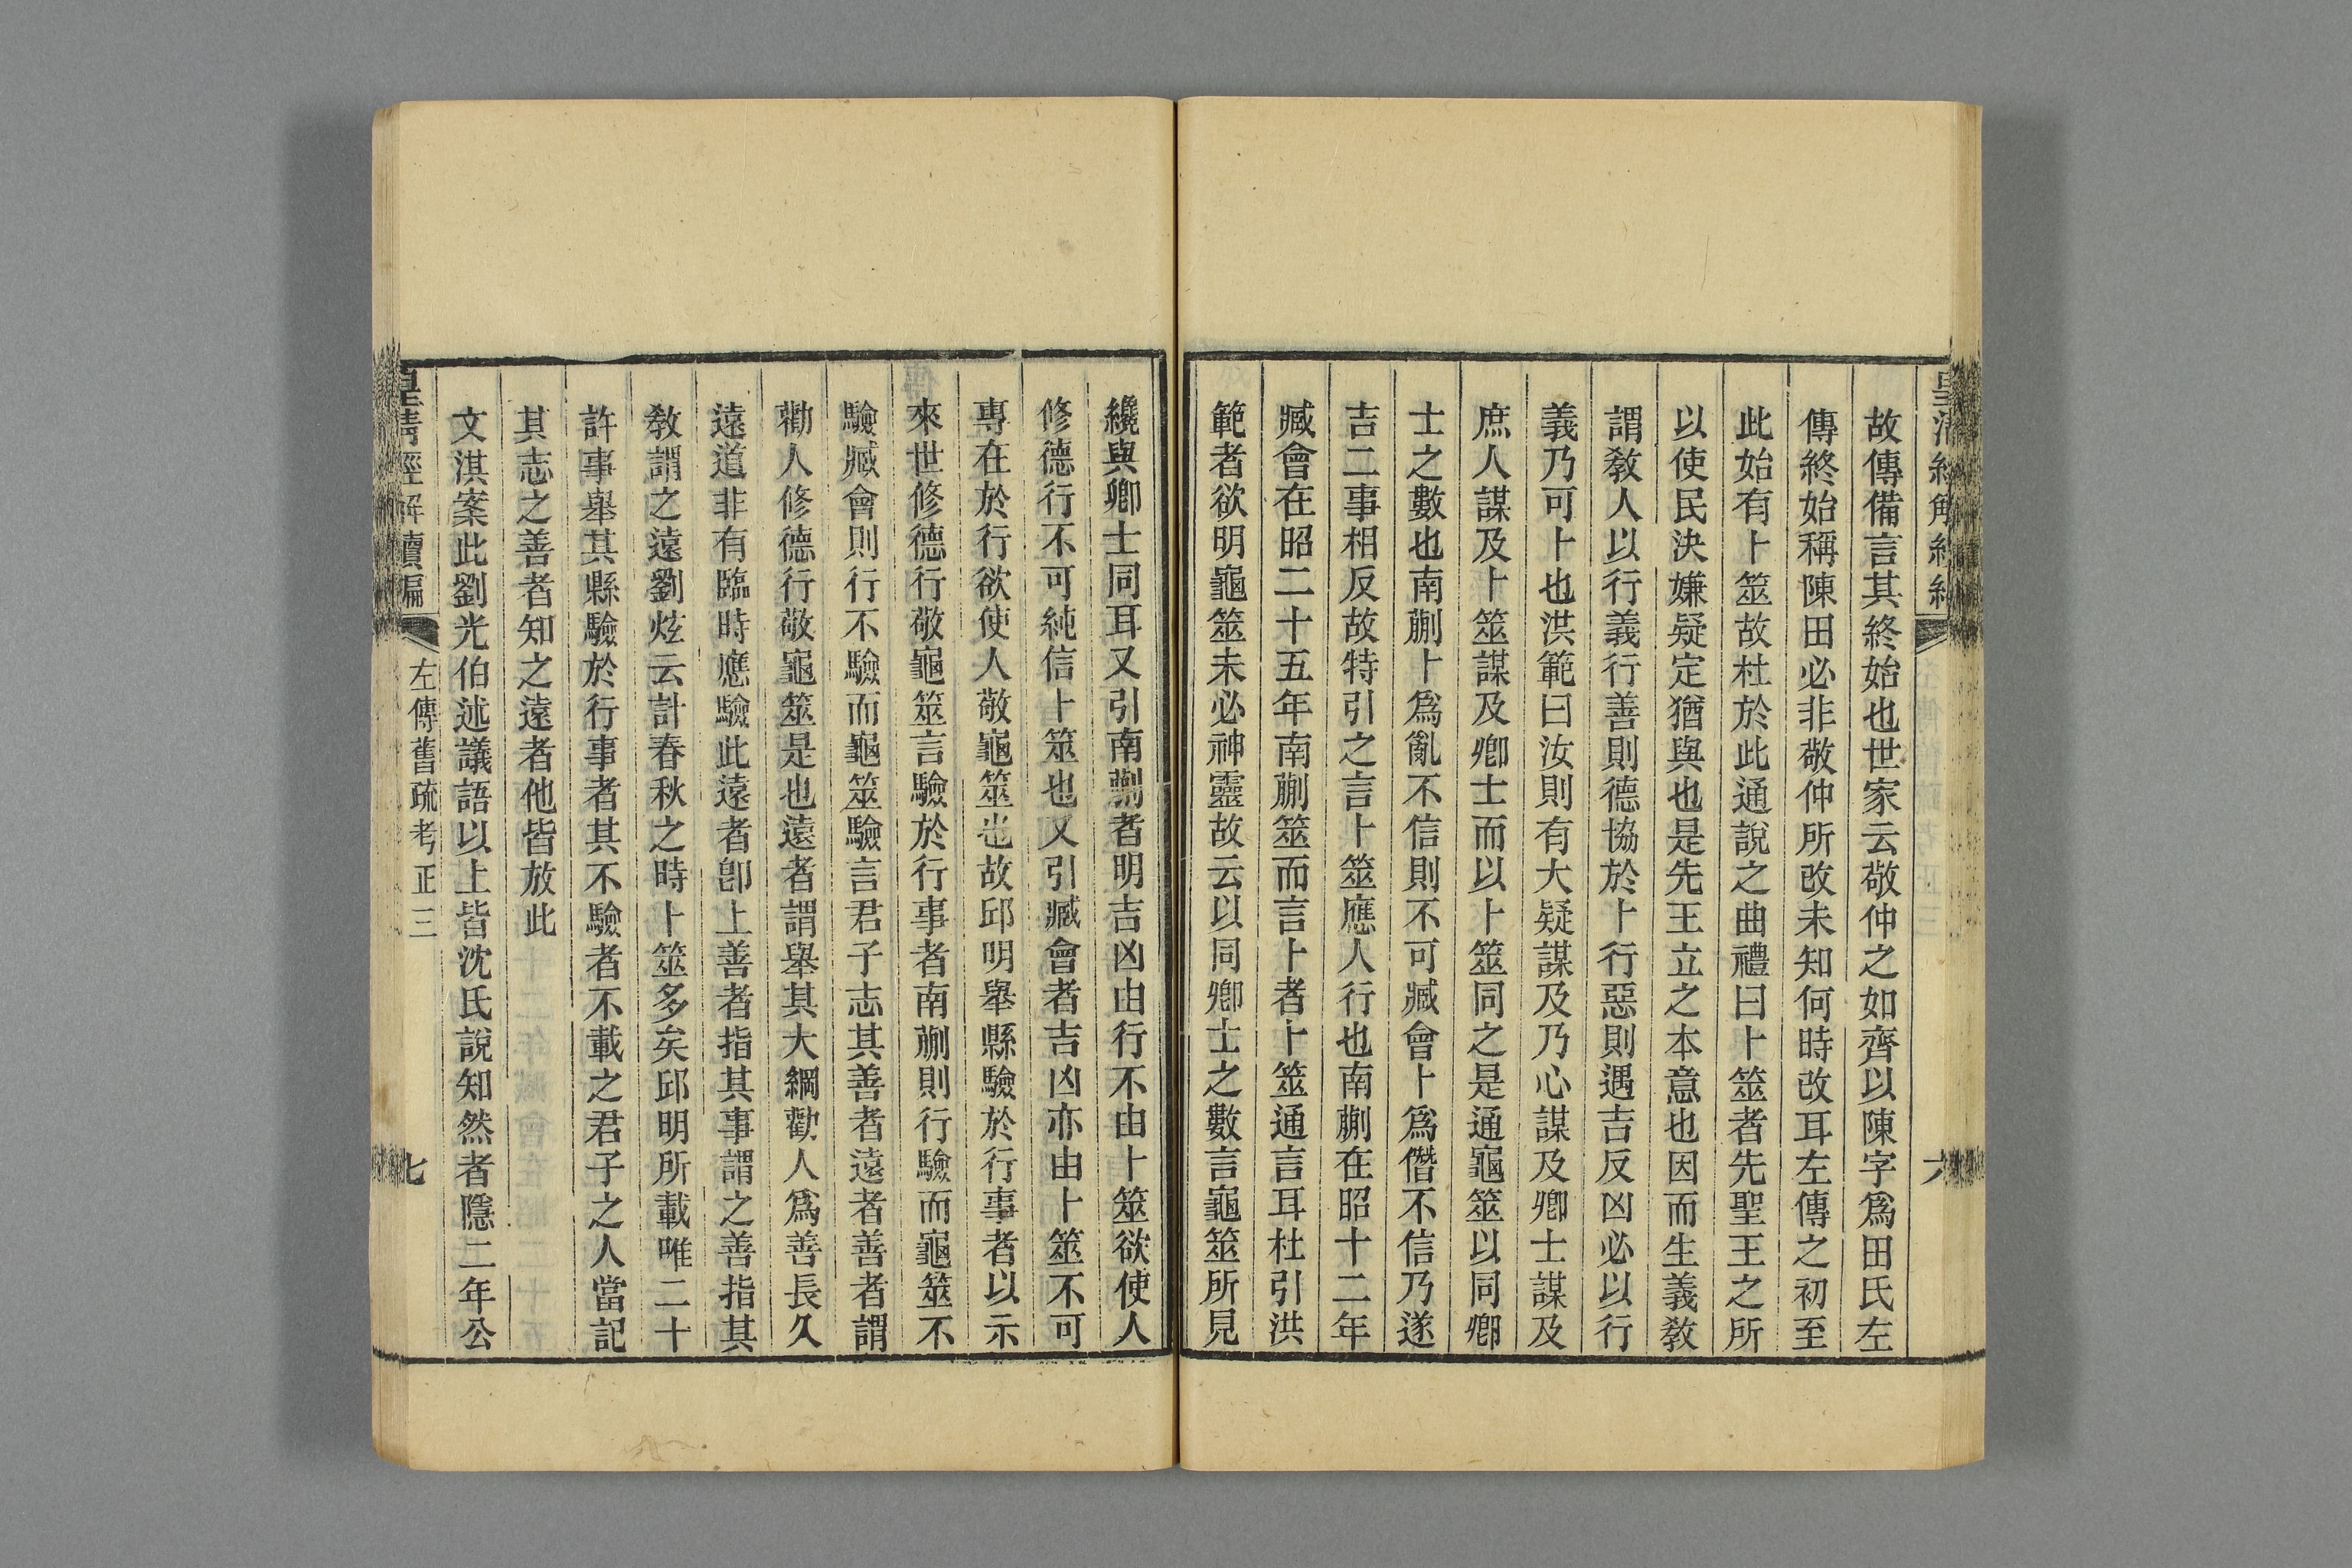 故傳備言其終始也世家云敬仲之如齊以陳字爲田氏左
傳終始稱陳田必非敬仲所改未知何時改耳左傳之初至
此始有卜筮故杜於此通說之曲禮曰卜筮者先聖王之所
以使民決嫌疑定猶與也是先王立之本意也因而生義敎
謂敎人以行義行善則德協於卜行惡則遇吉反凶必以行
義乃可卜也洪範曰汝則有大疑謀及乃心謀及卿士謀及
庶人謀及卜筮謀及卿士而以卜筮同之是通龜筮以同卿
士之數也南蒯卜爲亂不信則不可臧會卜爲僭不信乃遂
吉二事相反故特引之言卜筮應人行也南蒯在昭十二年
臧會在昭二十五年南蒯筮而言卜者卜筮通言耳杜引洪
範者欲明龜筮未必神靈故云以同卿士之數言龜筮所見
纔與卿士同耳又引南蒯者明吉凶由行不由卜筮欲使人
修德行不可純信卜筮也又引臧會者吉凶亦由卜筮不可
專在於行欲使人敬龜筮也故邱明舉縣驗於行事者以示
來世修德行敬龜筮言驗於行事者南蒯則行驗而龜筮不
驗臧會則行不驗而龜筮驗言君子志其善者遠者善者謂
勸人修德行敬龜筮是也遠者謂舉其大綱勸人爲善長久
遠道非有臨時應驗此遠者卽上善者指其事謂之善指其
敎謂之遠劉炫云計春秋之時卜筮多矣邱明所載唯二十
許事舉其縣驗於行事者其不驗者不載之君子之人當記
其志之善者知之遠者他皆放此
文淇案此劉光伯述議語以上皆沈氏說知然者隱二年公
皇清經解續編
左傳舊疏考正三
七